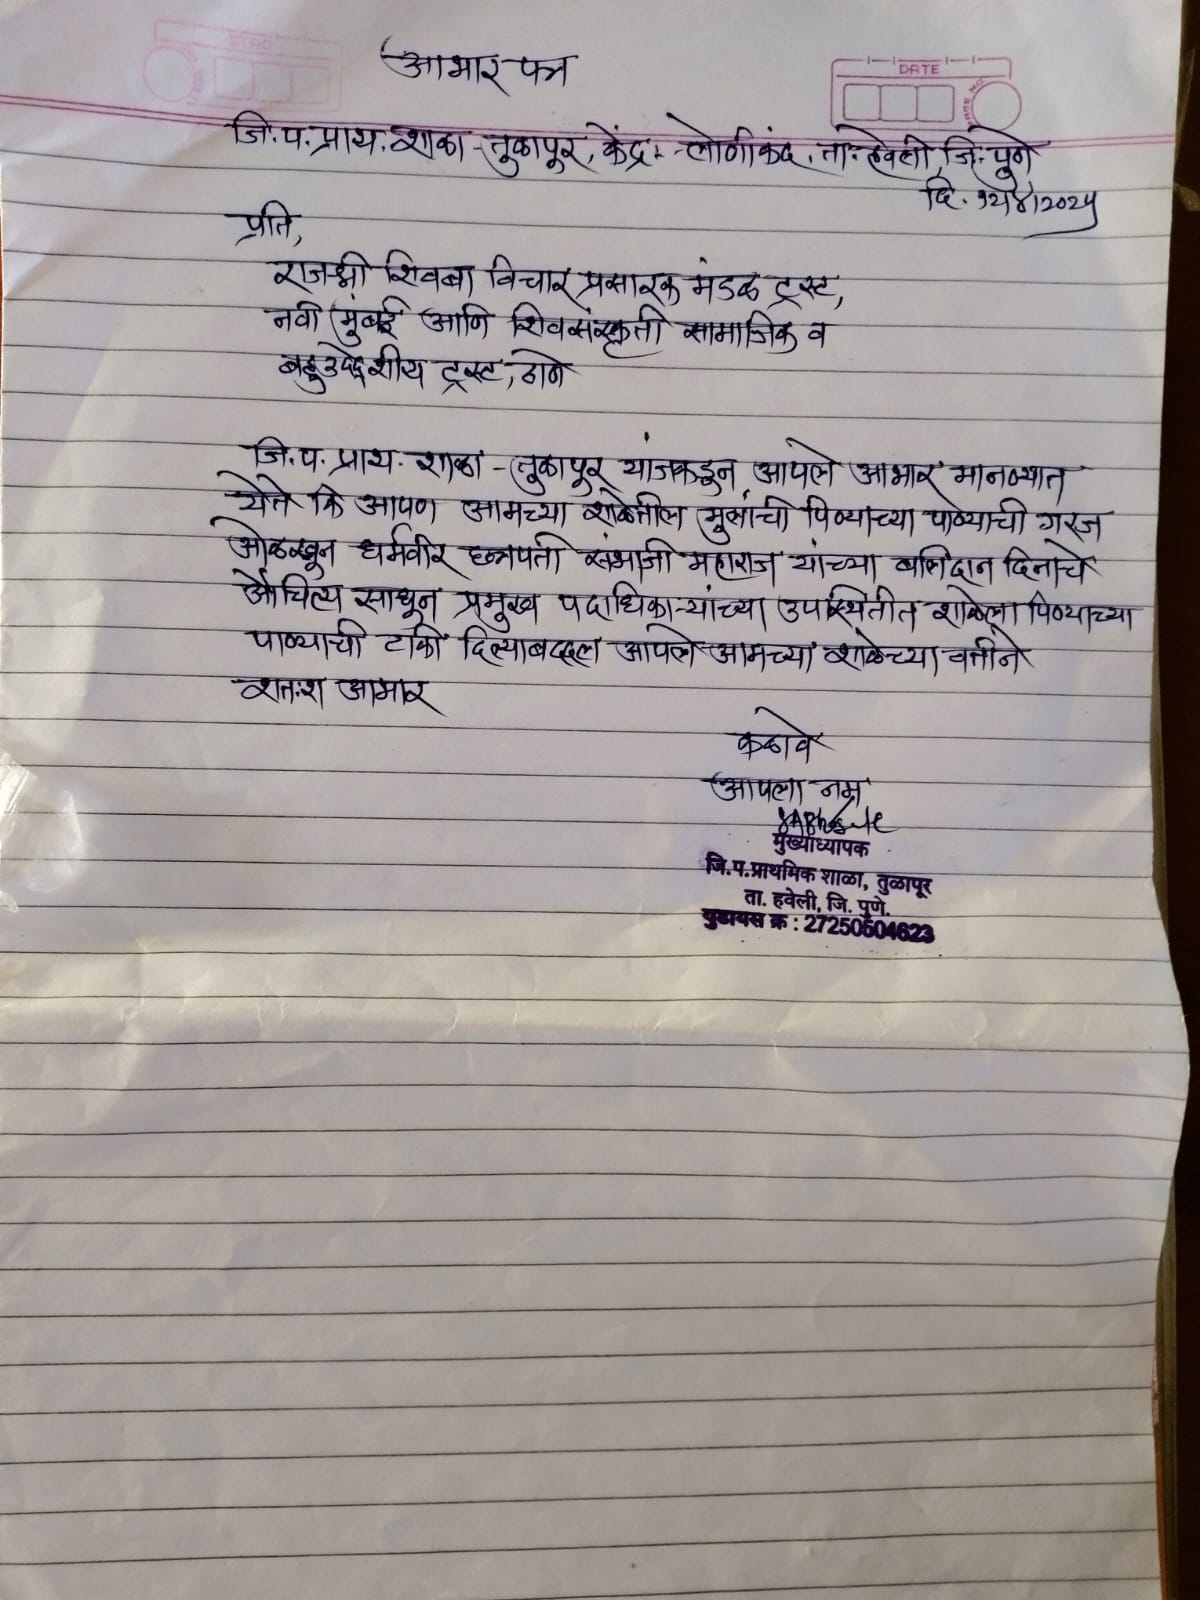 आभार पत्र
DATE
जि.प.प्राथ.शाळा-तुळापूर, केंद्र:-लोणीकंद, ता.हवेली,जि.पुणे
दि. १२/४/२०२५
प्रति,
राजश्री शिवबा विचार प्रसारक मंडळ ट्रस्ट,
नवी मुंबई आणि शिवसंस्कृती सामाजिक व
बहुउद्देशीय ट्रस्ट, ठाणे
जि.प. प्राथ. शाळा -तुळापूर यांजकडून आपले आभार मानण्यात
येते कि आपण आमच्या शाळेतील मुलांची पिण्याच्या पाण्याची गरज
ओळखून धर्मवीर छत्रपती संभाजी महाराज यांच्या बलिदान दिनाचे
औचित्य साधून प्रमुख पदाधिकाऱ्यांच्या उपस्थितीत शाळेला पिण्याच्या
पाण्याची टाकी दिल्याबद्दल आपले आमच्या शाळेच्या वतीने
शतःश आभार
कळावे
आपला नम्र
मुख्याध्यापक
जि.प.प्राथमिक शाळा, तुळापूर
ता. हवेली, जि. पुणे.
युडायस क्र : 27250504623